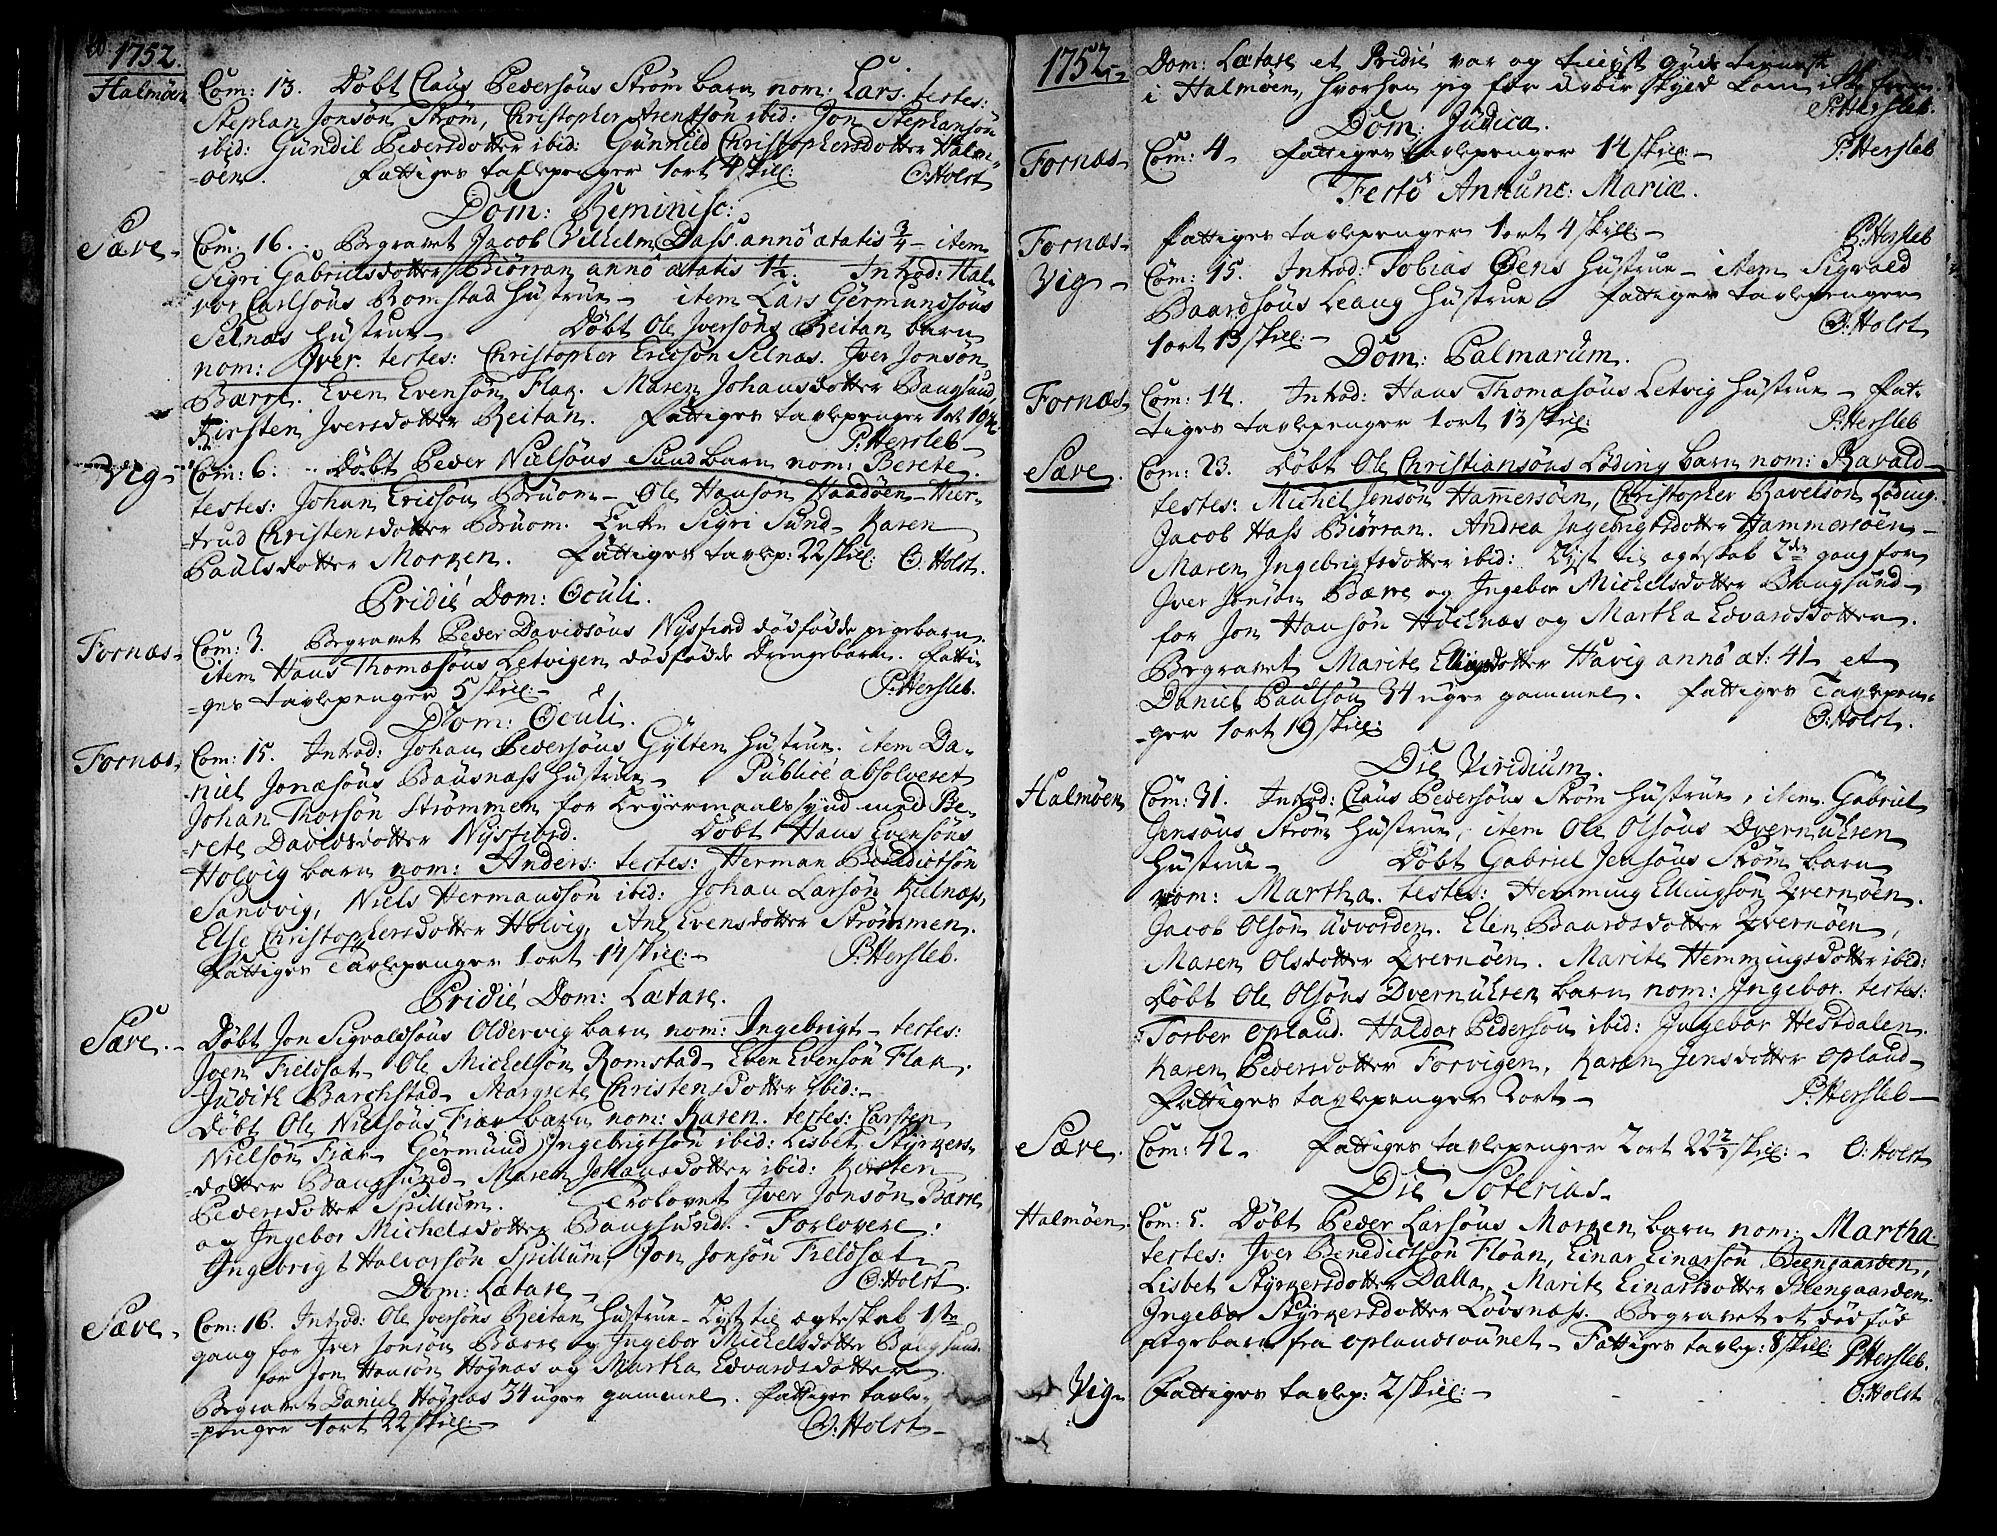 1752.
Halmöen Com: 13. Döbt Claus Pedersöns Ström barn nom: Lars. testes:
Stephan Jonsön Ström, Christopher Arentsön ibid: Jon Stephansön
ibid: Gundil Pedersdotter ibid: Gunnild Christophersdotter Halm-
=öen. Fattiges taflepenger 1 ort 4 skill: O: Holst
Dom: Reminisc:
Sæve Com: 16. Begravet Jacob Vilhelm Dass anno ætatis 3/4 - item
Sigri Gabrielsdotter Biörran anno ætatis 1 1/2. Introd: Hal-
vor Carlsöns Romstad Hustrue - item Lars Germundsöns
Selnæs Hustrue Döbt Ole Iversöns Reitan barn
nom: Iver. testes: Christopher Ericsön Selnæs. Iver Jonsön
Barre. Even Evensön Flak. Maren Johansdotter Bangsund
Kirsten Iversdotter Reitan. Fattiges tavlepenger 1 ort 10 sk
P: Hersleb
Vig Com: 6: Döbt Peder Nielsöns Sund barn nom: Berete.
testes: Johan Ericsön Bruom - Ole Hansön Haadöen - Kier-
=trud Christensdotter Bruom. Enke Sigri Sund - Karen
Paulsdotter Morken. Fattiges tavlep: 22 skill: O: Holst.
Pridie Dom: Oculi.
Fornæs Com: 3. Begravet Peder Davidsöns Nysfiord dödfödde pigebarn
item Hans Thomæsöns Letvigen dödfödde Drengebarn. Fatti-
=ges tavlepenger 5 skill: P: Hersleb.
Dom: Oculi.
Fornæs Com: 15. Introd: Johan Pedersöns Gylten Hustrue. item Da-
=niel Jonæsöns Bausnæss Hustrue - Publice absolveret
Johan Thorsön Strömmen for Leyermaals synd med Be-
=rete Davidsdotter Nysfiord. Döbt Hans Evensöns
Holvig barn nom: Anders: testes: Herman Benedictsön
Sandvig, Niels Hermandsön ibid: Johan Larsön Kilnæss,
Else Christophersdotter Holvig, Ane Evensdotter Strömmen.
Fattiges Tavlepenger 1 ort 14 skill: P: Hersleb.
Pridie Dom: Lætare.
Sæve. Döbt Jon Sigvaldsöns Oldervig barn nom: Ingebrigt - testes:
Joen Fieldsæt - Ole Michelsön Romstad - Even Evensön Flak.
Judith Barchstad - Margrete Christensdotter ibid:
Döbt Ole Nielsöns Fiær barn nom: Karen. testes: Carsten
Nielsön Fiær - Germund Ingebrigtsön ibid: Lisbet Styrkers-
=dotter Bangsund - Maren Johansdotter ibid: Kirsten
Pedersdotter Spillum. Trolovet Iver Jonsön Barre
og Ingebor Michelsdotter Bangsund. Forlovere:
Ingebrigt Halvorsön Spillum, Jon Jonsön Fieldsæt
O: Holst.
Dom: Lætare
Sæve Com: 16. Introd: Ole Iversöns Reitan Hustrue - Lyst til ægteskab 1ste
gang for Iver Jonsön Barre og Ingebor Michelsdotter Bangsund
for Jon Hansön Högnæs og Martha Edvardsdotter
Begravet Daniel Högnæs 34 uger gammel. Fattiges tavle-
=penger 1 ort 22 skill: O: Holst
1752.
Dom: Lætare et Pridie var og tillyst Guds tienest
i Halmöen, hvorhen jeg for uveir skyld kom ikke frem.
P: Hersleb.
Dom: Judica.
Fornæs Com: 4 - Fattiges tavlepenger 14 skill: P: Hersleb
Festo Annunc: Mariæ.
Fornæs Fattiges tavlepenger 1 ort 4 skill: P: Hersleb
Vig Com: 15. Introd: Tobias Öens Hustrue - item Sigvald
Baardsöns Leang Hustrue Fattiges tavlepenger
1 ort 13 skill: O: Holst
Dom: Palmarum.
Fornæs Com: 14. Introd: Hans Thomasöns Letvig Hustrue - Fat-
tiges tavlepenger 1 ort 13 skill: P: Hersleb
Sæve. Com: 23. Döbt Ole Christiansöns Löding barn nom: Ravald
testes: Michel Jensön Hammersöen, Christopher Ravelsön Löding.
Jacob Hass Biörran. Andrea Ingebrigtsdotter Hammersöen
Maren Ingebrigtsdotter ibid: Lyst til ægteskab 2den gang for
Iver Jonsön Barre og Ingebor Michelsdotter Bangsund
for Jon Hansön Högnæs og Martha Edvardsdotter.
Begravet Marite Ellingsdotter Havig anno æt: 41 - et
Daniel Paulsön 34 uger gammel. Fattiges Tavlepen-
=ger 1 ort 19 skill: O: Holst.
Die Viridium.
Halmöen Com: 31. Introd: Claus Pedersöns Ström Hustrue, item Gabriel
Jensöns Ström Hustrue, item Ole Olsöns Overhulsen
Hustrue - Döbt Gabriel Jensöns Ström barn
nom: Martha. testes: Hemming Ellingsön Qvernöen.
Jacob Olsön Udvorden. Elen Baardsdotter Qvernöen,
Maren Olsdotter Qvernöen. Marite Hemmingsdotter ibid:
Döbt Ole Olsöns Overhulsen barn nom: Ingebor. testes:
Torber Opland. Haldor Pedersön ibid: Ingebor Hestdalen.
Karen Pedersdotter Forvigen, Karen Jensdotter Opland
Fattiges tavlepenger 2 ort - P: Hersleb
Sæve. Com: 42 - Fattiges tavlepenger 2 ort 22 1/2 skill: O: Holst
Die Soterias.
Halmöen. Com: 5. Döbt Peder Larsöns Morken barn nom: Martha.
testes: Iver Benedictsön Flöan, Einar Einarsön Beengaarden,
Lisbet Styrkersdotter Dalla, Marite Einarsdotter Beengaarden.
Ingebor Styrkersdotter Lövsnæss. Begravet et dödföd
pigebarn fra Oplandsvunet - Fattiges tavlep: 8 skill: P: Hersleb.
Vig Fattiges tavlep: 2 skill: O: Holst